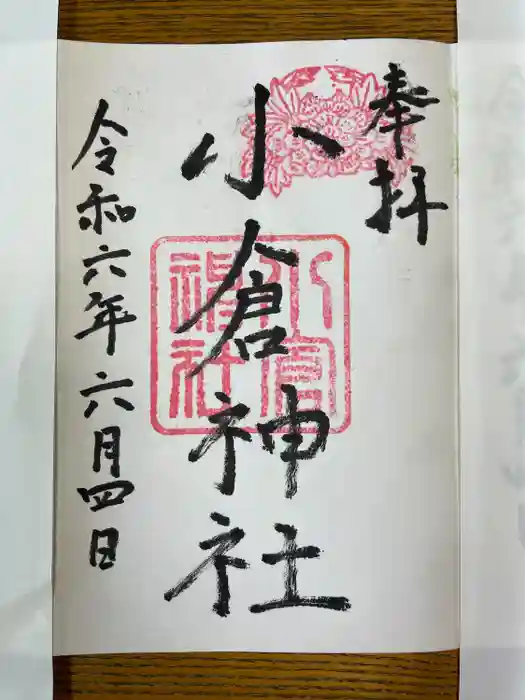 奉拝
小倉神社
小倉神社
令和六年六月四日